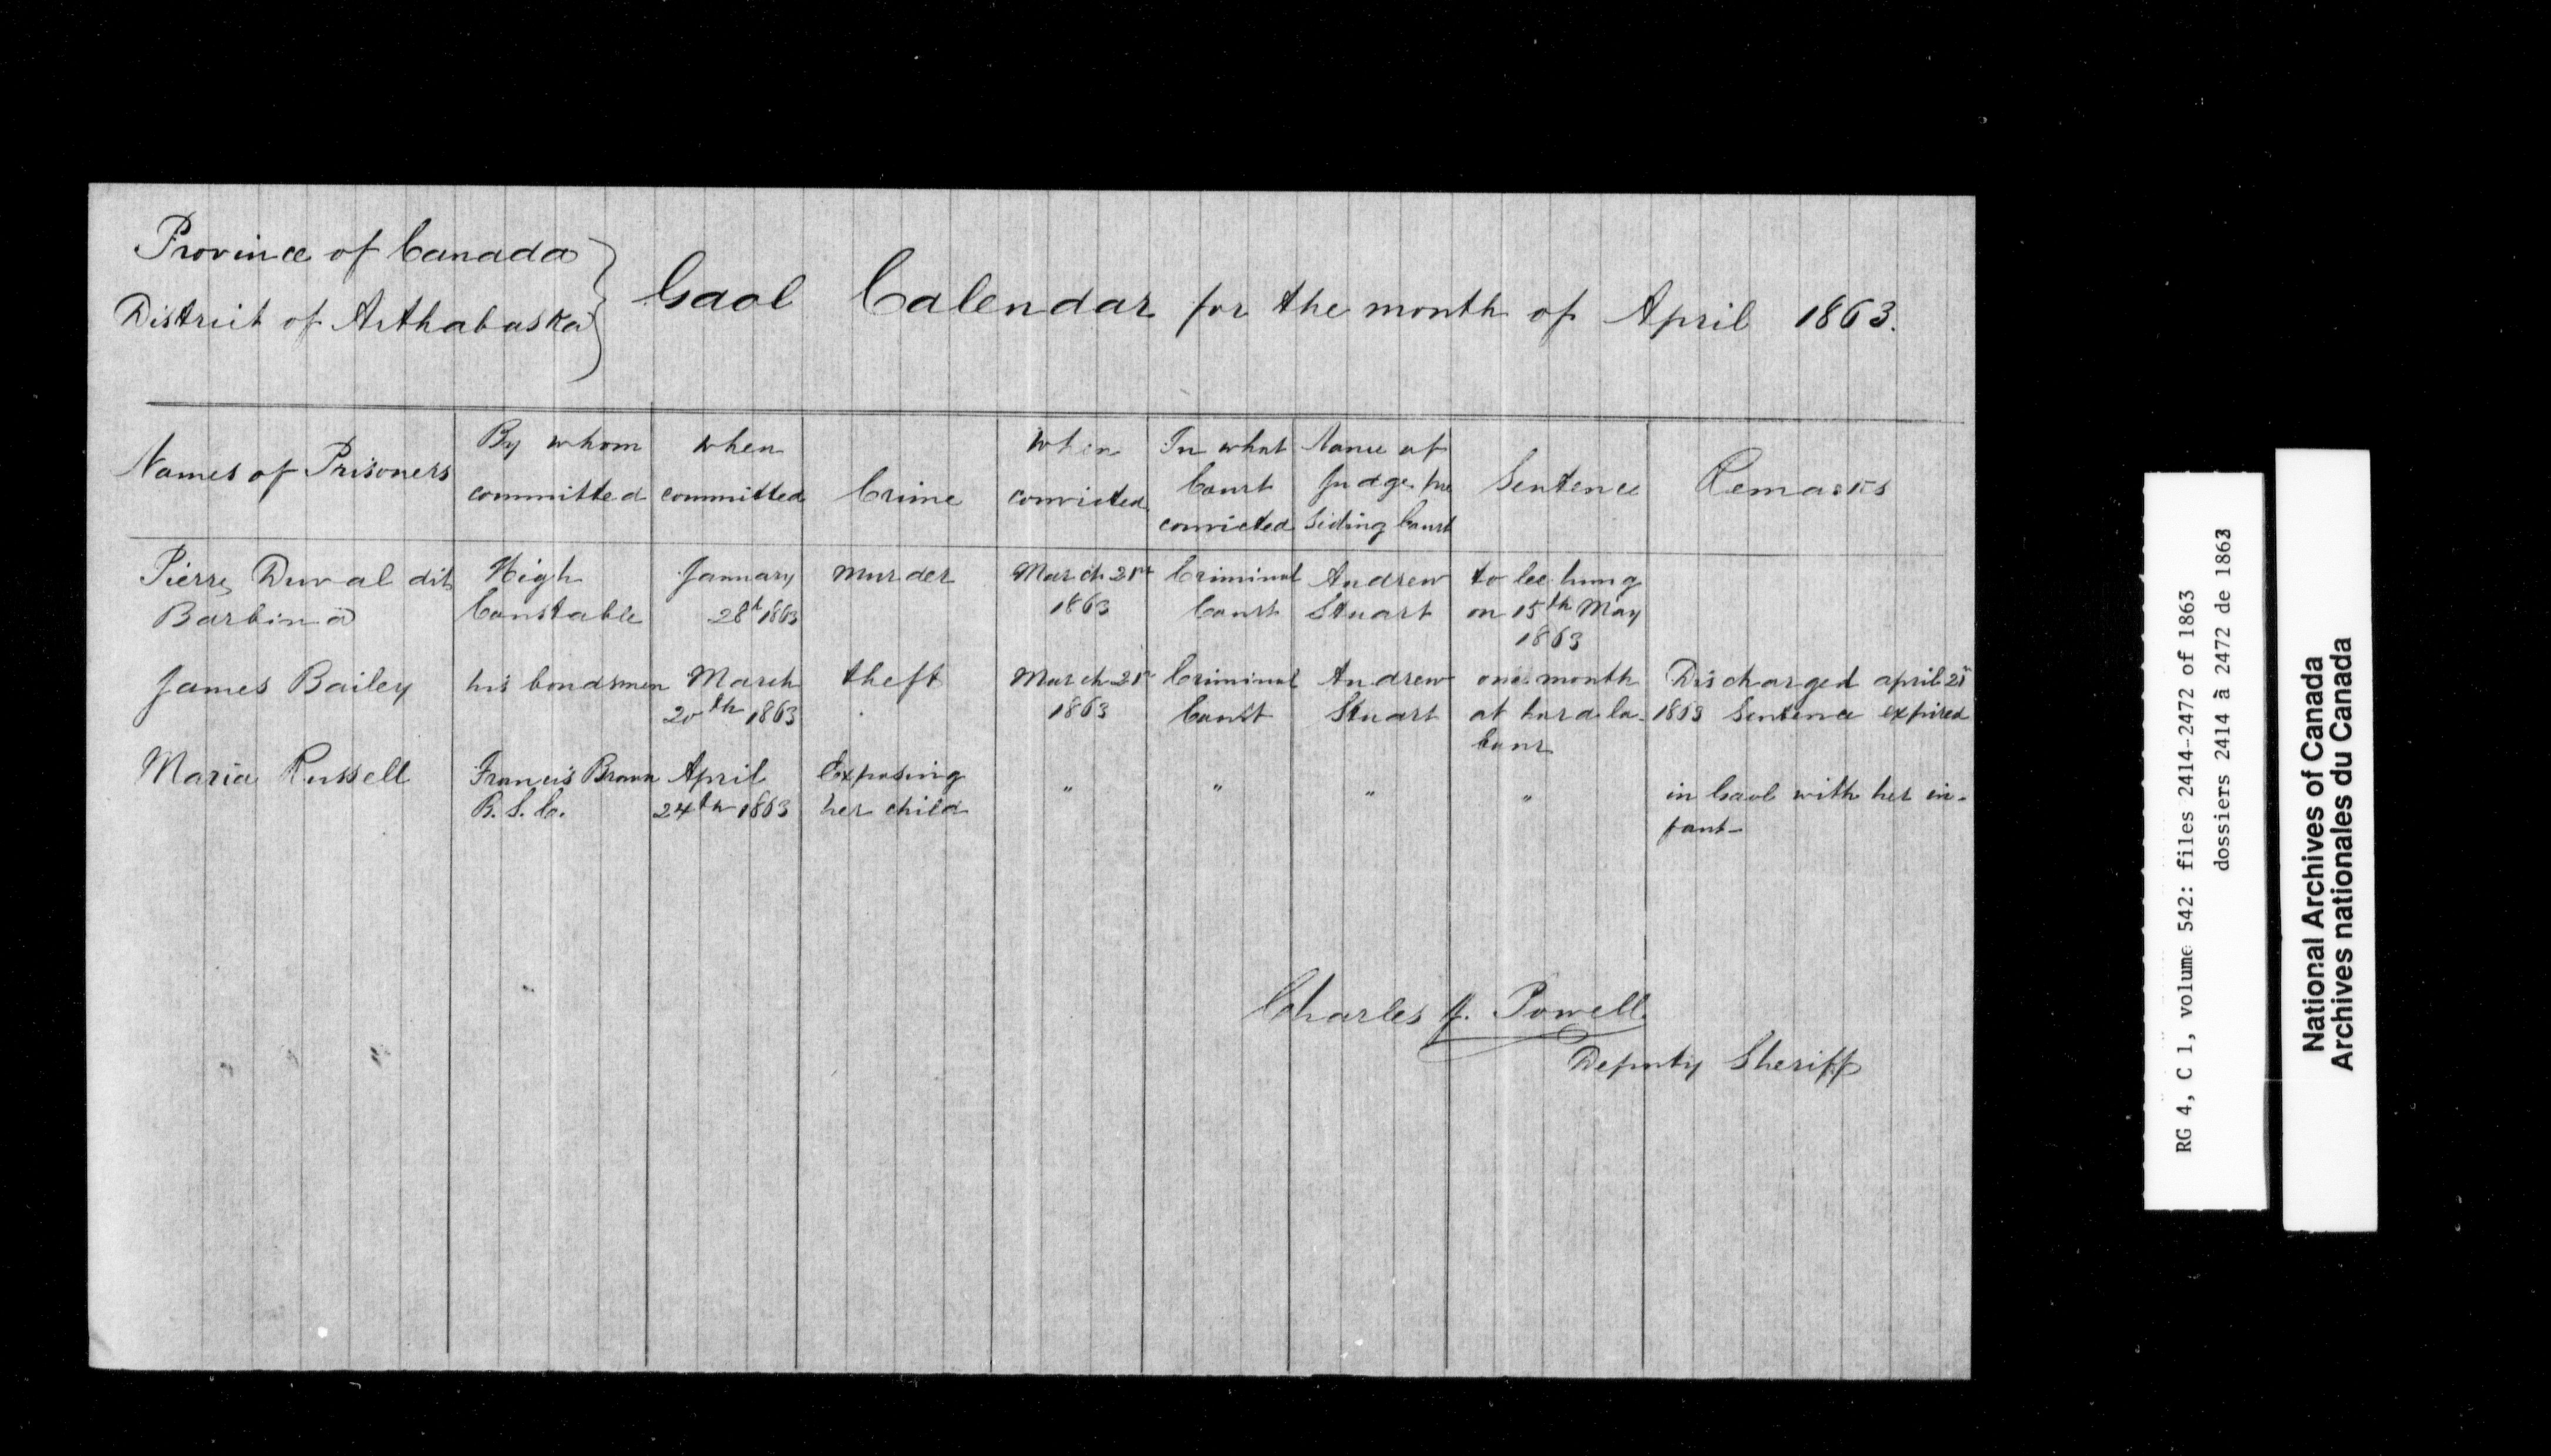 Province of Canada
District of Arthabaska
Gaol Calendar for the month of April 1863.
Names of Prisoners
By whom
committed
when
committed
Crime
when
convicted
In what
Court
convicted
Name of
Judge pre
siding Court
Sentence
Remarks
Pierre Duval dit
Barbina
High
Constable
January
28th 1863
murder
March 21st
1863
Criminal
Court
Andrew
Stuart
to be hung
on 15th May
1863
James Bailey
his bondsmen
March
20th 1863
theft
March 21st
1863
Criminal
Court
Andrew
Stuart
one month
at hard la-
bour
Discharged april 21st
1863 Sentence expired
Maria Russell
Francis Brown
B. S. C.
April
24th 1863
Exposing
her child
"
"
"
"
in Gaol with her in-
fant-
Charles J. Powell
Deputy Sheriff
RG 4, C 1, volume 542: files 2414-2472 of 1863
dossiers 2414 à 2472 de 1863
National Archives of Canada
Archives nationales du Canada